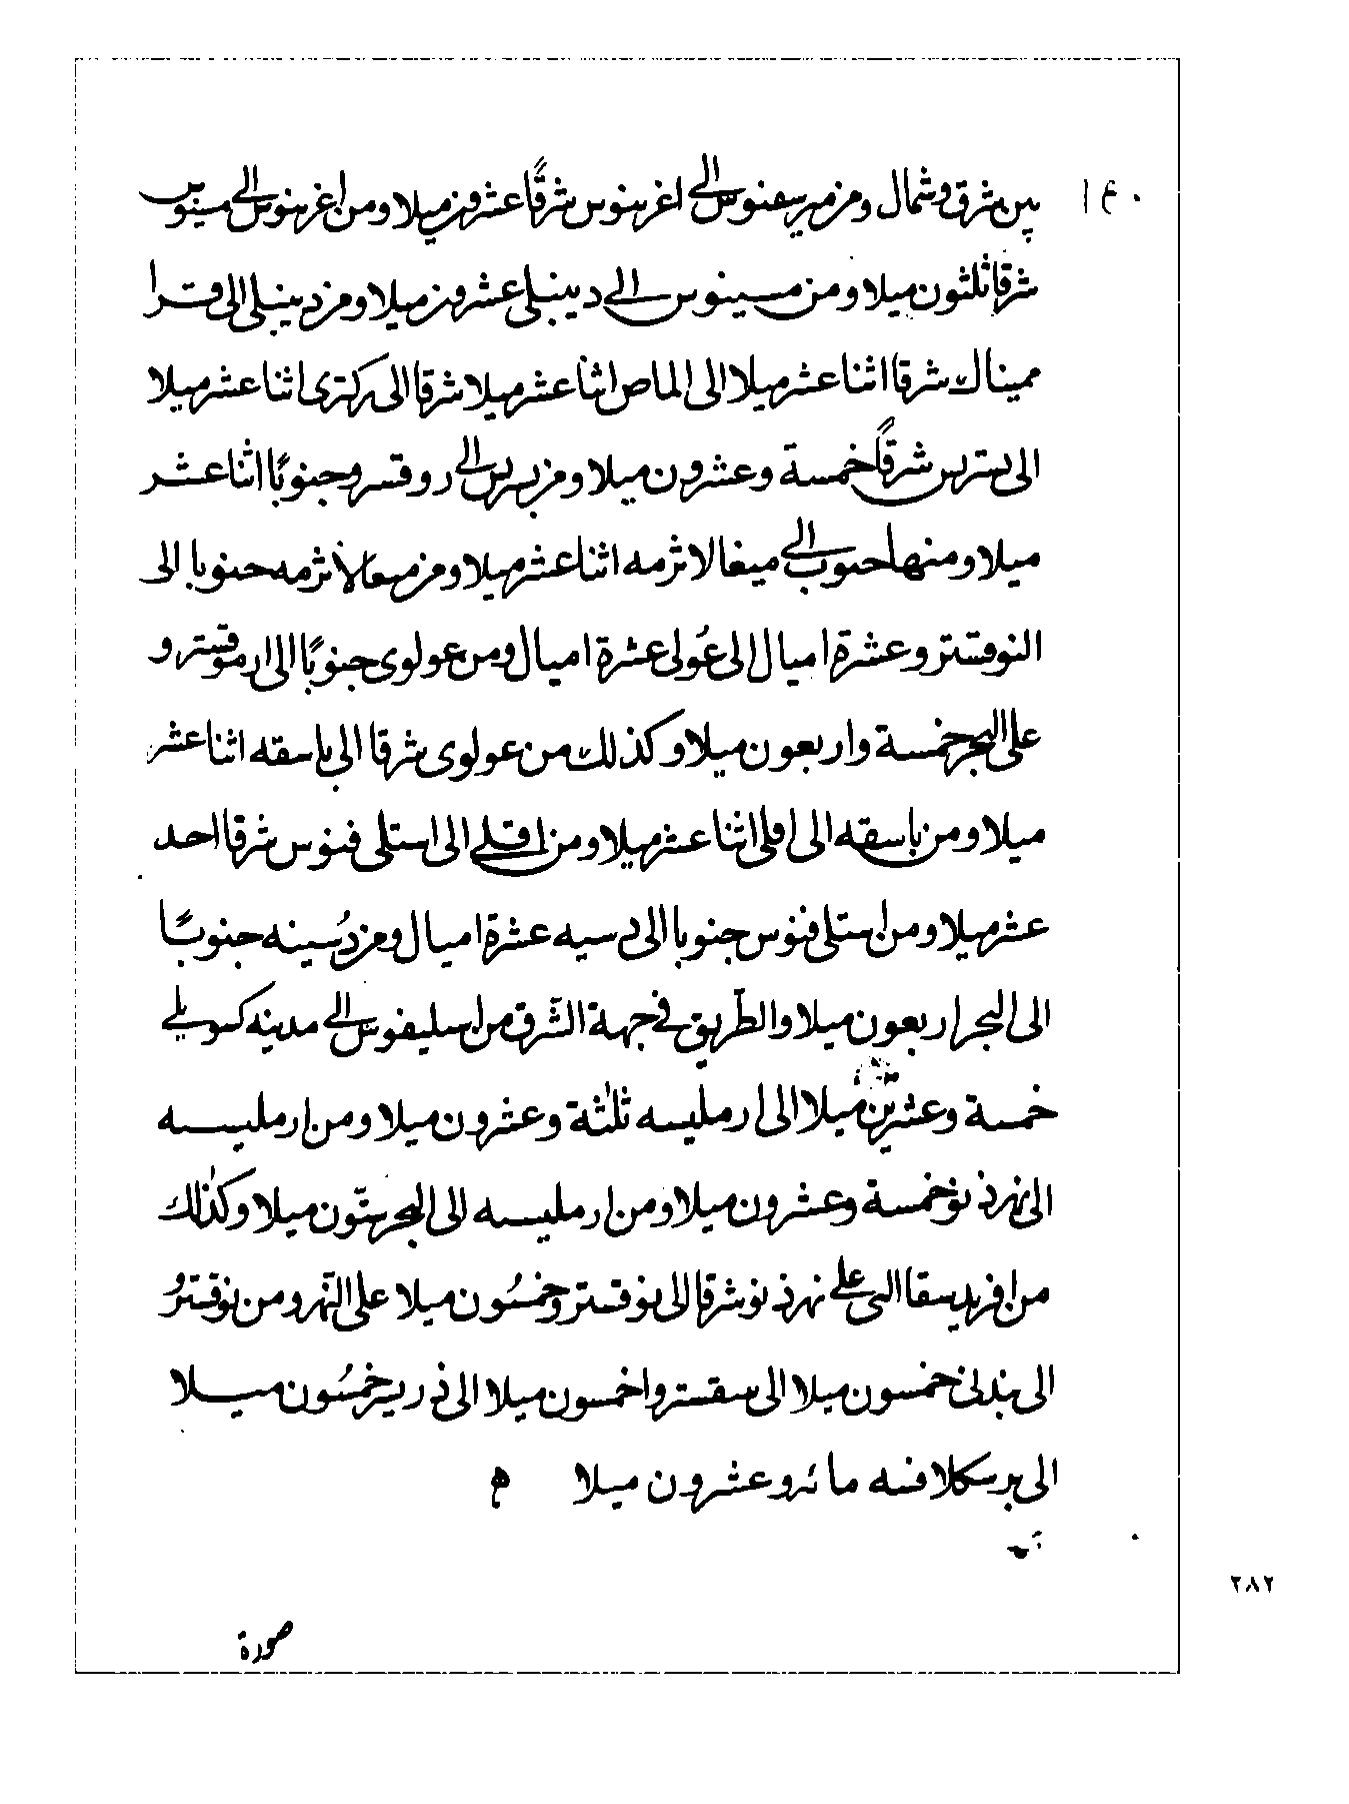 بين شرق وشمال ومن ميرسفنوس الى اغرينوس شرقًا عشرون ميلا ومن اغرينوس الى مسينوس
شرقا ثلثون ميلا ومن مسينوس الى دينبلى عشرون ميلا ومن دينبلى الى قرا
ميناك شرقا اثنا عشر ميلا الى الماص اثنا عشر ميلا شرقا الى ركترى اثنا عشر ميلا
الى بترس شرقًا خمسة وعشرون ميلا ومن بترس الى روقسرو جنوبًا اثنا عشر
ميلا ومنها جنوب الى ميغالاثرمه اثنا عشر ميلا ومن ميغالاثرمه جنوبا الى
النوقسترو عشرة اميال الى عُولى عشرة اميال ومن عولوى جنوبًا الى ارموقسترو
على البحر خمسة واربعون ميلا وكذلك من عولوى شرقا الى باسقه اثنا عشر
ميلا ومن باسقه الى اقلى اثنا عشر ميلا ومن اقلى الى استلى فنوس شرقا احد
عشر ميلا ومن استلى فنوس جنوبا الى دسيه عشرة اميال ومن دُسينه جنوبًا
الى البحر اربعون ميلا والطريق فى جهة الشرق من اسليفوس الى مدينه كسوبلى
خمسة وعشرين ميلا الى ارمليسه ثلثة وعشرون ميلا ومن ارمليسه
الى نهر ذنو خمسة وعشرون ميلا ومن ارمليسه الى البحر ستّون ميلا وكذلك
من افريدسقا التى على نهر ذنو شرقا الى نوقسترو خمسُون ميلا على النّهر ومن نوقسترُ
الى بندلى خمسون ميلا الى سقسترو اخمسون ميلا الى ذرسير خمسُون ميلا
الى برسكلافسه مائه وعشرون ميلا ه
صورة
٢٨٢